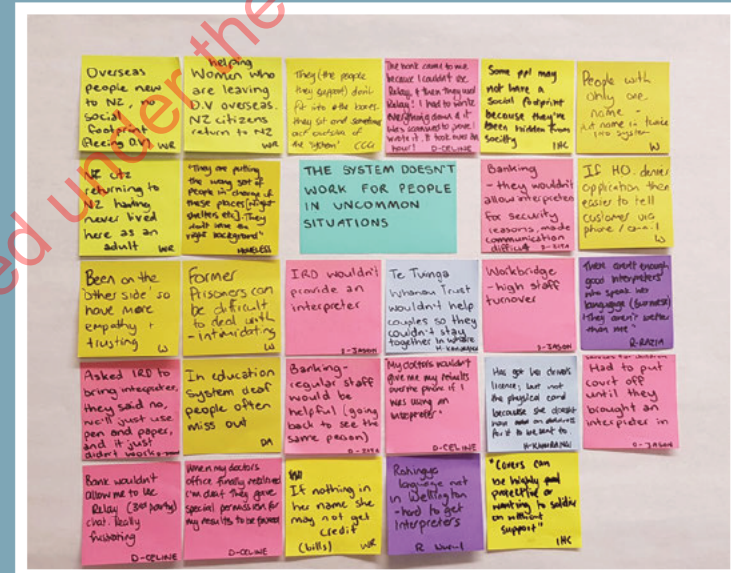 ed under the
Overseas
people new
to NZ, no
social
footprint
(fleeing D.V)
WR
helping
Women who
are leaving
D.V overseas.
NZ citizens
return to NZ
WR
They (the people
they support) don't
fit into the boxes.
they sit and sometimes
act outside of
the 'system'
CCG
The bank called to me
because I couldn't use
Relay, & then they used
Relay! I had to write
everything down & it
was
to prove I
wrote it. It took over an
hour!
D-CELINE
Some ppl may
not have a
Social footprint
because they've
been hidden from
society
IHC
People with
only one
name -
put name in twice
into system
W
NZ ctz
returning to
NZ having
never lived
here as an
adult
WR
"They are putting
the wrong sort of
people in charge of
these places [night
shelters etc]. They
don't have the
right background"
HOMELESS
THE SYSTEM DOESN'T
WORK FOR PEOPLE
IN UNCOMMON
SITUATIONS
Banking
- they wouldn't
allow interpreter
for security
reasons, made
communication
difficult
If HO. denies
application then
easier to tell
customer via
phone /
W
Been on the
'other side' so
have more
empathy +
trusting
W
Former
Prisoners can
be difficult
to deal with
- intimidating
W
IRD wouldn't
provide an
interpreter
D-JASON
Te Tuinga
Whanau Trust
wouldn't help
couples so they
couldn't stay
together in whare
Workbridge
- high staff
turnover
D-JASON
There aren't enough
good interpreters
who speak her
language (Burmese)
"They aren't better
than me"
R-RAZIA
Asked IRD to
bring interpreter,
they said no,
we'll just use
pen and paper,
and it just
didn't work
In education
system deaf
people often
miss out
DA
Banking-
regular staff
would be
helpful (going
back to see the
same person)
My doctors wouldn't
give me my results
over the phone if I
was using an
interpreter"
D-CELINE
Has got her drivers
licence, but not
the physical card
because she doesn't
have an address
for it to be sent to.
Had to put
court off
until they
brought an
interpreter in
D-JASON
Bank wouldn't
allow me to use
Relay (3rd party)
chat. Really
frustrating
D-CELINE
When my doctors
office finally realised
I'm deaf they gave
special permission for
my results to be
D-CELINE
If nothing in
her name she
may not get
credit
(bills)
WR
Rohingya
language not
in Wellington
- hard to get
interpreters
R
"Carers can
be highly
protective or
wanting to soldier
on without
support"
IHC